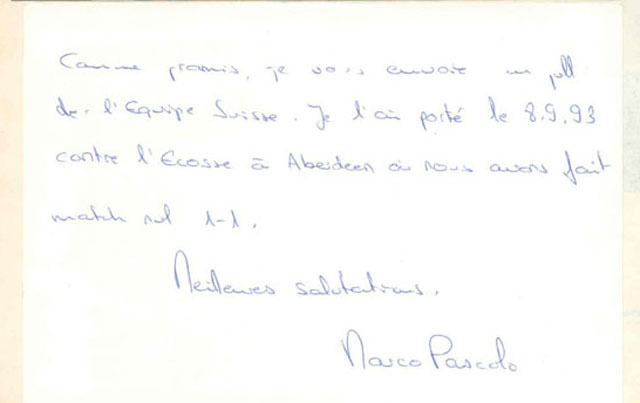 Comme promis, je vous envoie un pull
de l'Equipe Suisse. Je l'ai porté le 8.9.93
contre l'Ecosse à Aberdeen où nous avons fait
match nul 1-1.
Meilleures salutations.
Marco Pascolo